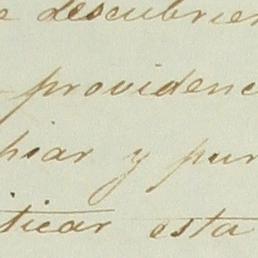 e descubrier
providenc
hiar y pur
ticar esta